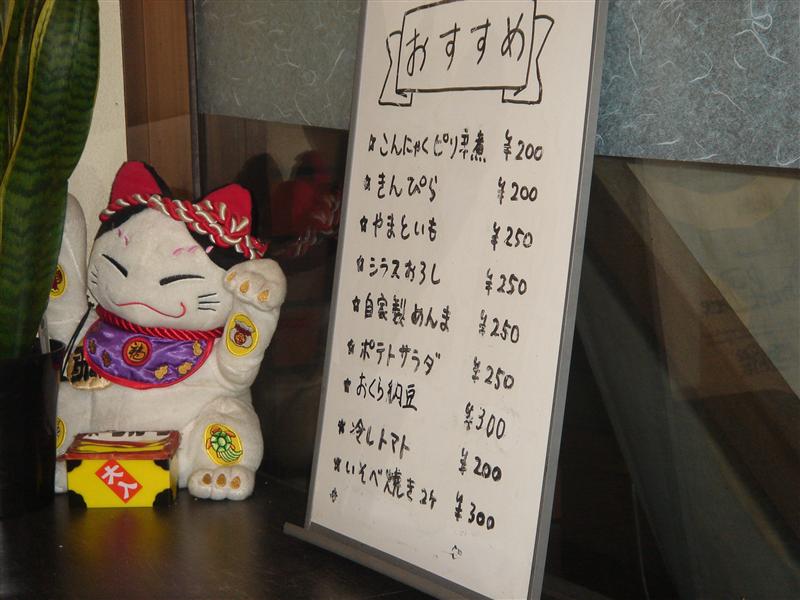 おすすめ
☆こんにゃくピリ辛煮 ¥200
☆きんぴら ¥200
☆やまといも ¥250
☆シラスおろし ¥250
☆自家製めんま ¥250
☆ポテトサラダ ¥250
☆おくら納豆 ¥300
☆冷しトマト ¥200
☆いそべ焼き 2ケ ¥300
☆
大入
福